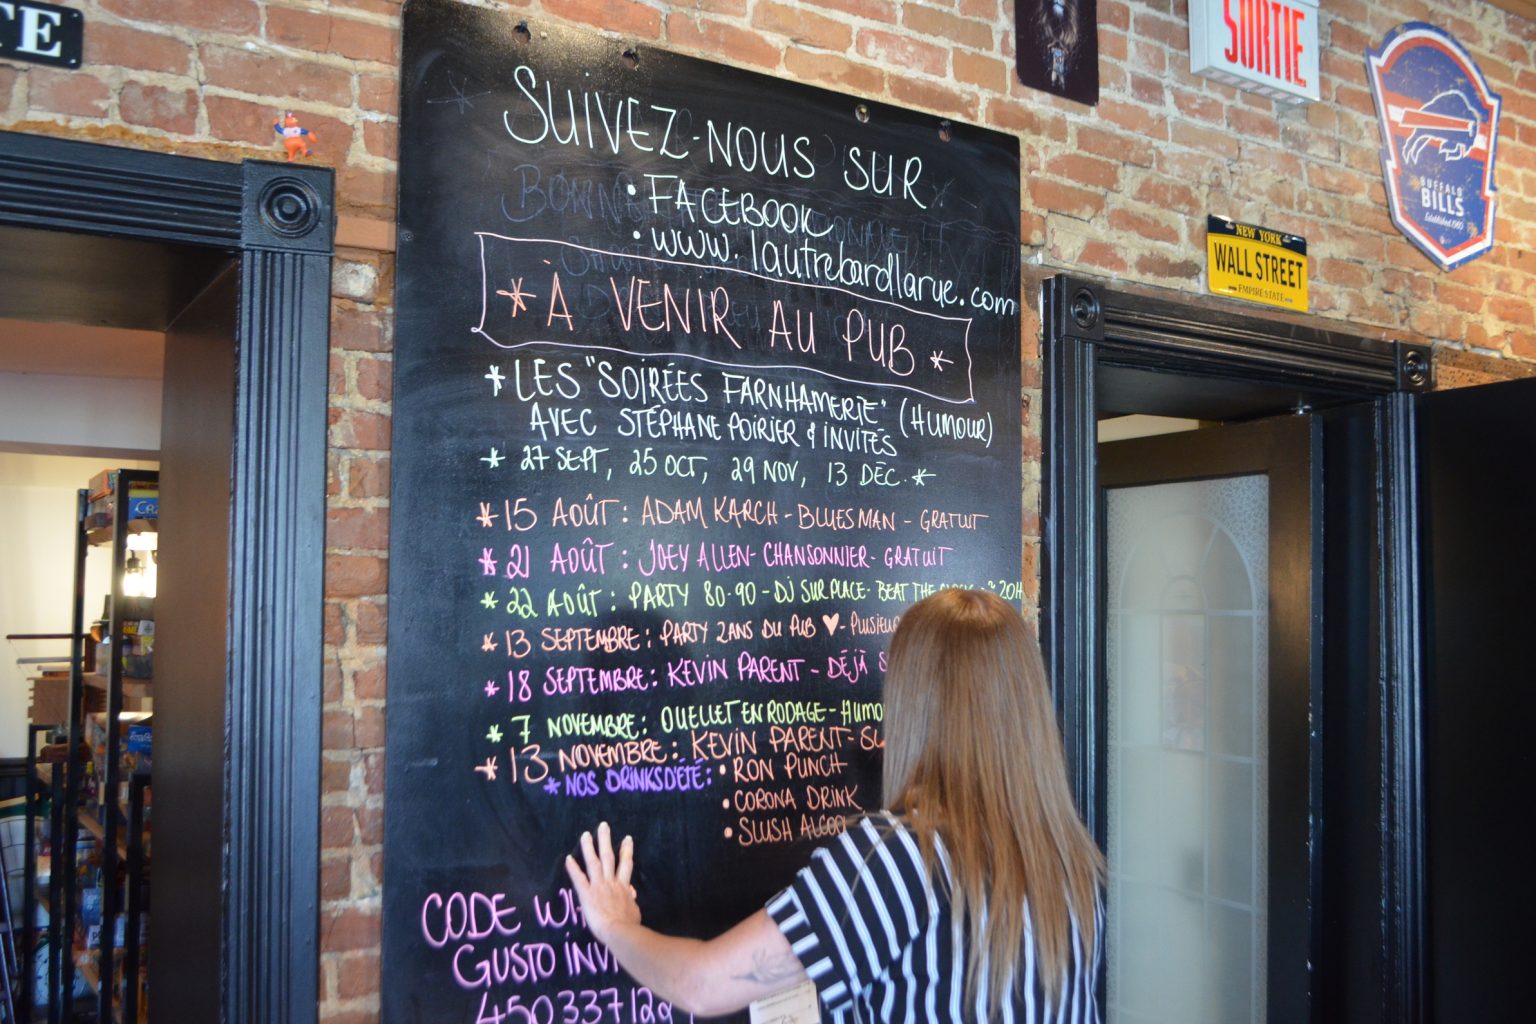 TE
SORTIE
BUFFALO
BILLS
Established 1960
NEW YORK
WALL STREET
EMPIRE STATE
SUIVEZ-NOUS SUR
• FACEBOOK
• www.lautrebardlarue.com
* À VENIR AU PUB *
* LES "SOIRÉES FARNHAMERIE" (HUMOUR)
AVEC STÉPHANE POIRIER & INVITÉS
* 27 SEPT, 25 OCT, 29 NOV, 13 DÉC. *
* 15 AOÛT : ADAM KARCH - BLUESMAN - GRATUIT
* 21 AOÛT : JOEY ALLEN - CHANSONNIER - GRATUIT
* 22 AOÛT : PARTY 80-90 - DJ SUR PLACE - BEAT THE 20H
* 13 SEPTEMBRE : PARTY 2 ANS DU PUB ♥ -
* 18 SEPTEMBRE : KEVIN PARENT - DÉJÀ
* 7 NOVEMBRE : OUELLET EN RODAGE -
* 13 NOVEMBRE : KEVIN PARENT -
* NOS DRINKS D'ÉTÉ : • RON PUNCH
• CORONA DRINK
• SLUSH
CODE
GUSTO
450337